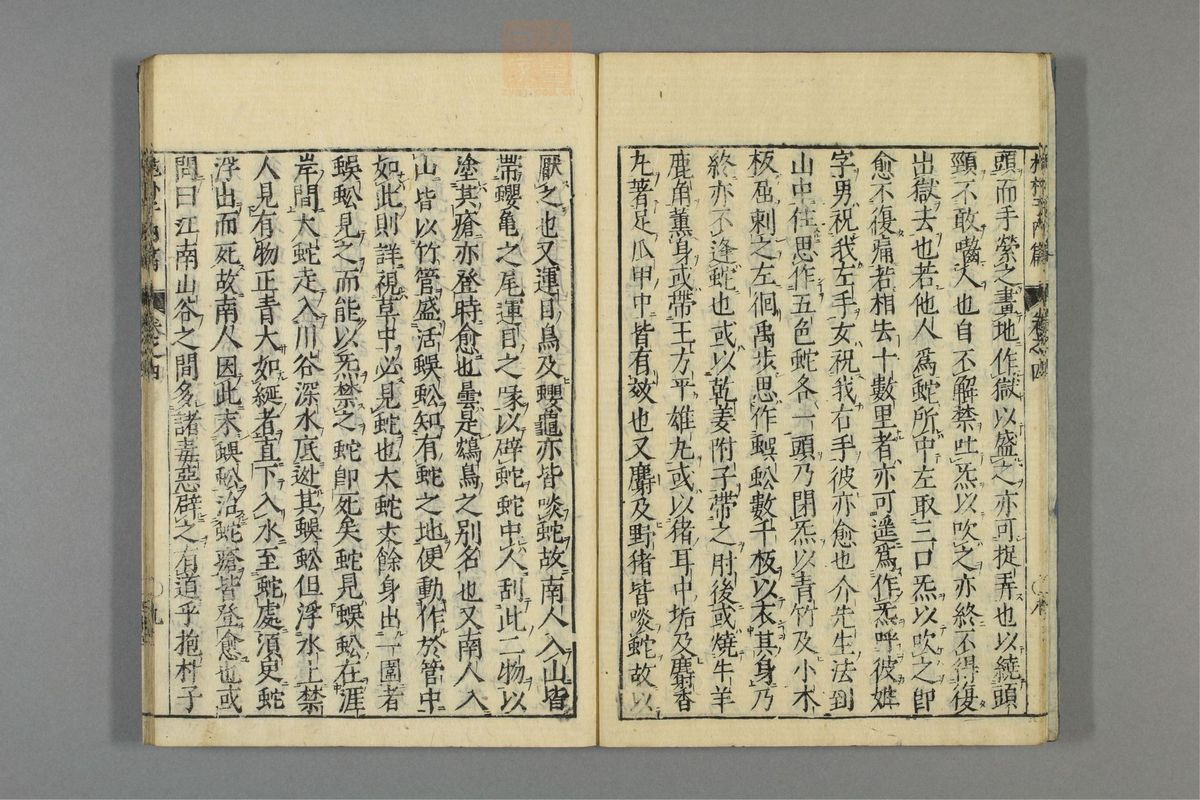 頭而手縈之畫地作獄以盛之亦可捉弄也以繞頭
頸不敢嚙人也自不解禁吐炁以吹之亦終不得復
出獄去也若他人爲蛇所中左取三口炁以吹之即
愈不復痛若相去十數里者亦可遥爲作炁呼彼姓
字男祝我左手女祝我右手彼亦愈也介先生法到
山中住思作五色蛇各一頭乃閉炁以青竹及小木
板屈刺之左徊禹步思作蜈蚣數千板以衣其身乃
終亦不逢蛇也或以乾姜附子帶之肘後或燒牛羊
鹿角薰身或帶王方平雄丸或以猪耳中垢及麝香
丸著足爪甲中皆有效也又麝及野猪皆啖蛇故以
厭之也又運日鳥及蠳龜亦皆啖蛇故南人入山皆
帶蠳亀之尾運日之喙以辟蛇蛇中人刮此二物以
塗其瘡亦登時愈也曇是鴆鳥之别名也又南人入
山皆以竹管盛活蜈蚣知有蛇之地便動作於管中
如此則詳視草中必見蛇也大蛇丈餘身出一圍者
蜈蚣見之而能以炁禁之蛇即死矣蛇見蜈蚣在涯
岸間大蛇走入川谷深水底逃其蜈蚣但浮水上禁
人見有物正青大如綖者直下入水至蛇處須臾蛇
浮出而死故南人因此末蜈蚣治蛇瘡皆登愈也或
問曰江南山谷之間多諸毒惡辟之有道乎抱朴子